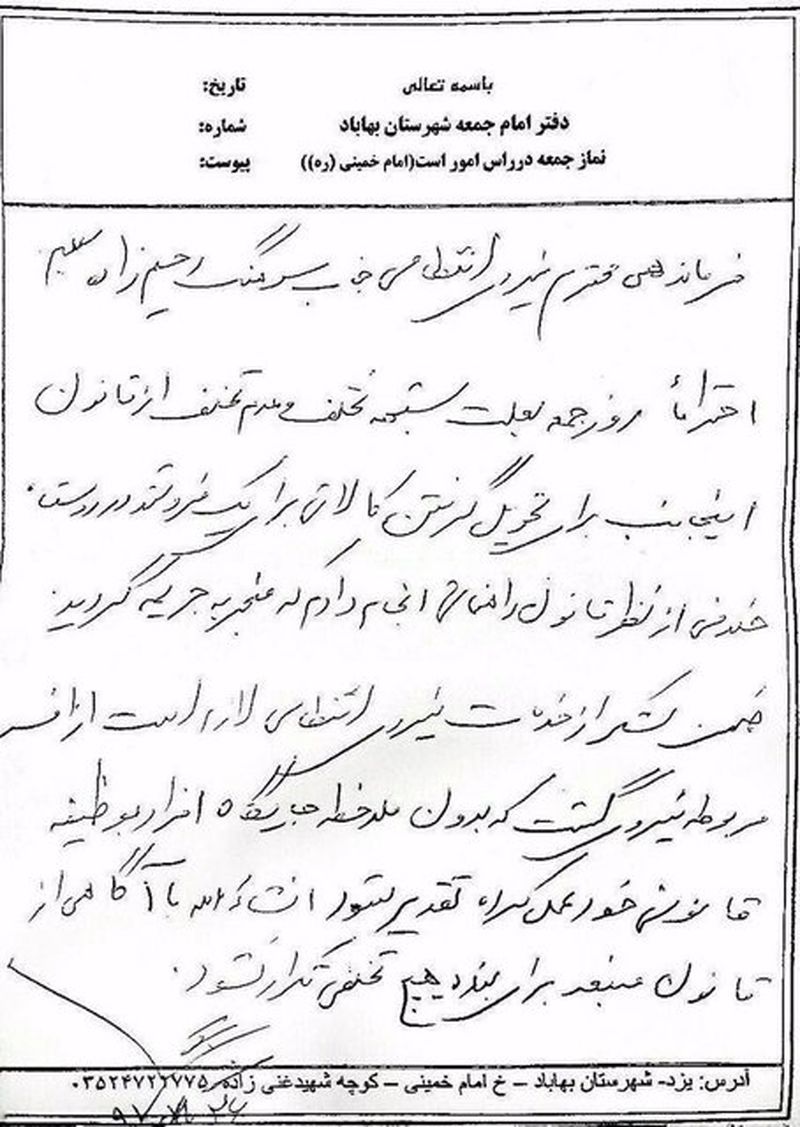 باسمه تعالی
تاریخ:
دفتر امام جمعه شهرستان بهاباد
شماره:
نماز جمعه درراس امور است(امام خمینی (ره))
پیوست:
فرماندهی محترم نیروی انتظامی جناب سرهنگ رحیم زاده
احتراماً روز جمعه بعلت شبهه تخلف و عدم تخلف از قانون
اینجانب برای تحویل گرفتن کالائی برای یک فروشنده دور زدنی
خلافی از نظر قانون راهنمائی انجام دادم که منجر به جریمه گردید
ضمن تشکر از خدمات نیروی انتظامی لازم است از افسر
مربوطه نیروی گشت که بدون ملاحظه جایگاه افراد بوظیفه
قانونی خود عمل کرده تقدیر بشود انشاءالله با آگاهی از
قانون منبعد برای بنده هیچ تخلفی تکرار نشود.
آدرس: یزد- شهرستان بهاباد – خ امام خمینی – کوچه شهیدغنی زاده ۰۳۵۲۴۷۲۲۷۷۵